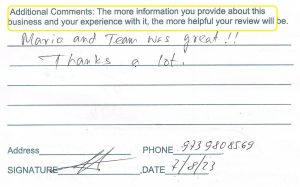 Additional Comments: The more information you provide about this
business and your experience with it, the more helpful your review will be.
Mario and Team was great!!
Thanks a lot.
Address PHONE 9739808569
SIGNATURE DATE 7/8/23